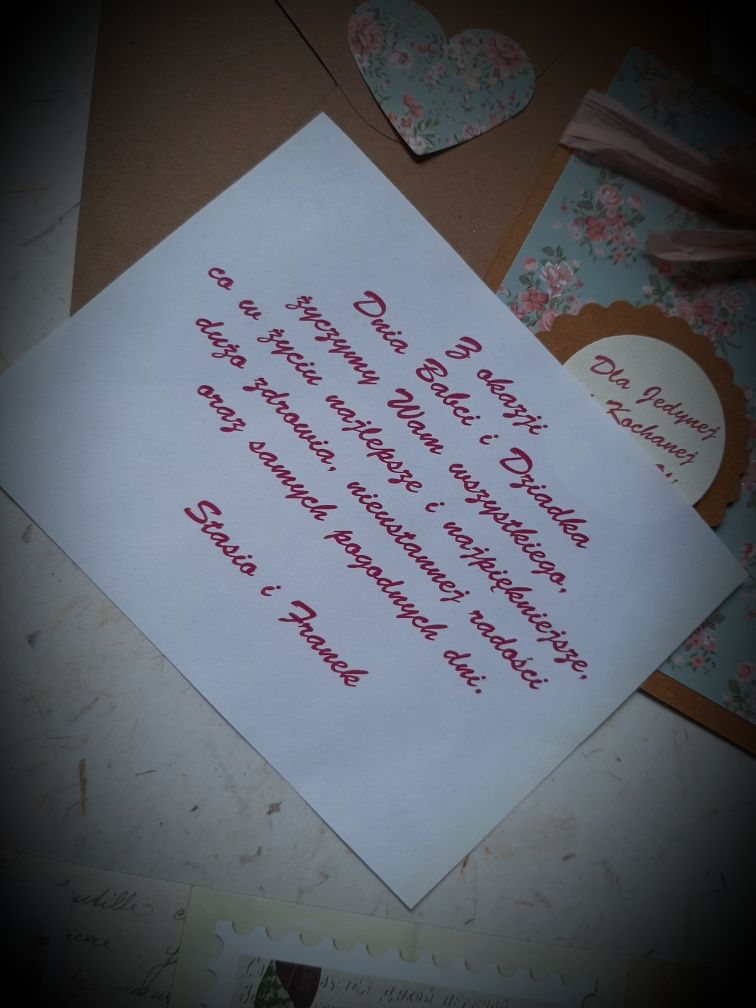 Z okazji
Dnia Babci i Dziadka
życzymy Wam wszystkiego,
co w życiu najlepsze i najpiękniejsze,
dużo zdrowia, nieustannej radości
oraz samych pogodnych dni.
Stasio i Franek
Dla Jedynej
i Kochanej